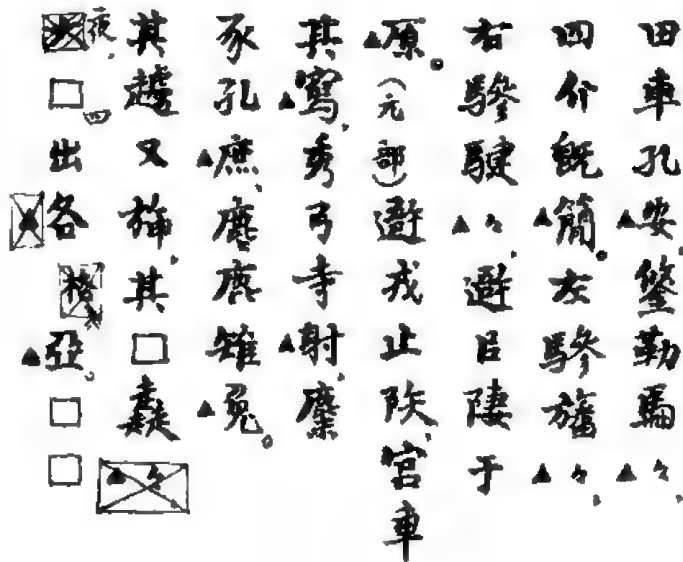 田車孔▲安鋚勒馬▲々
四介既▲簡左驂旛▲々
右驂騝▲々避㠯隮于
▲原(元部)避戎止陕宮車
其▲寫秀弓寺▲射麋
豕孔▲庶麀鹿雉▲兔
其趩又旆其□▲々
夜□四出各▲亞□□